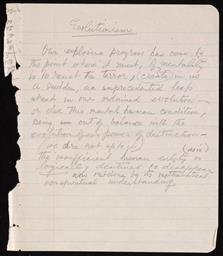 Evolutionism
Our explosive progress has come to
the point where it must, if mentality
is to outlast the terror, (create) in us
a sudden, an unprecedented leap
ahead in our ordained evolution —
or else this mental human condition,
being so out of balance with the
evolution of our power of destruction —
(we dare not up to)
(are) the insufficient human entity is
logically destined to disappear
now existing by its
understanding